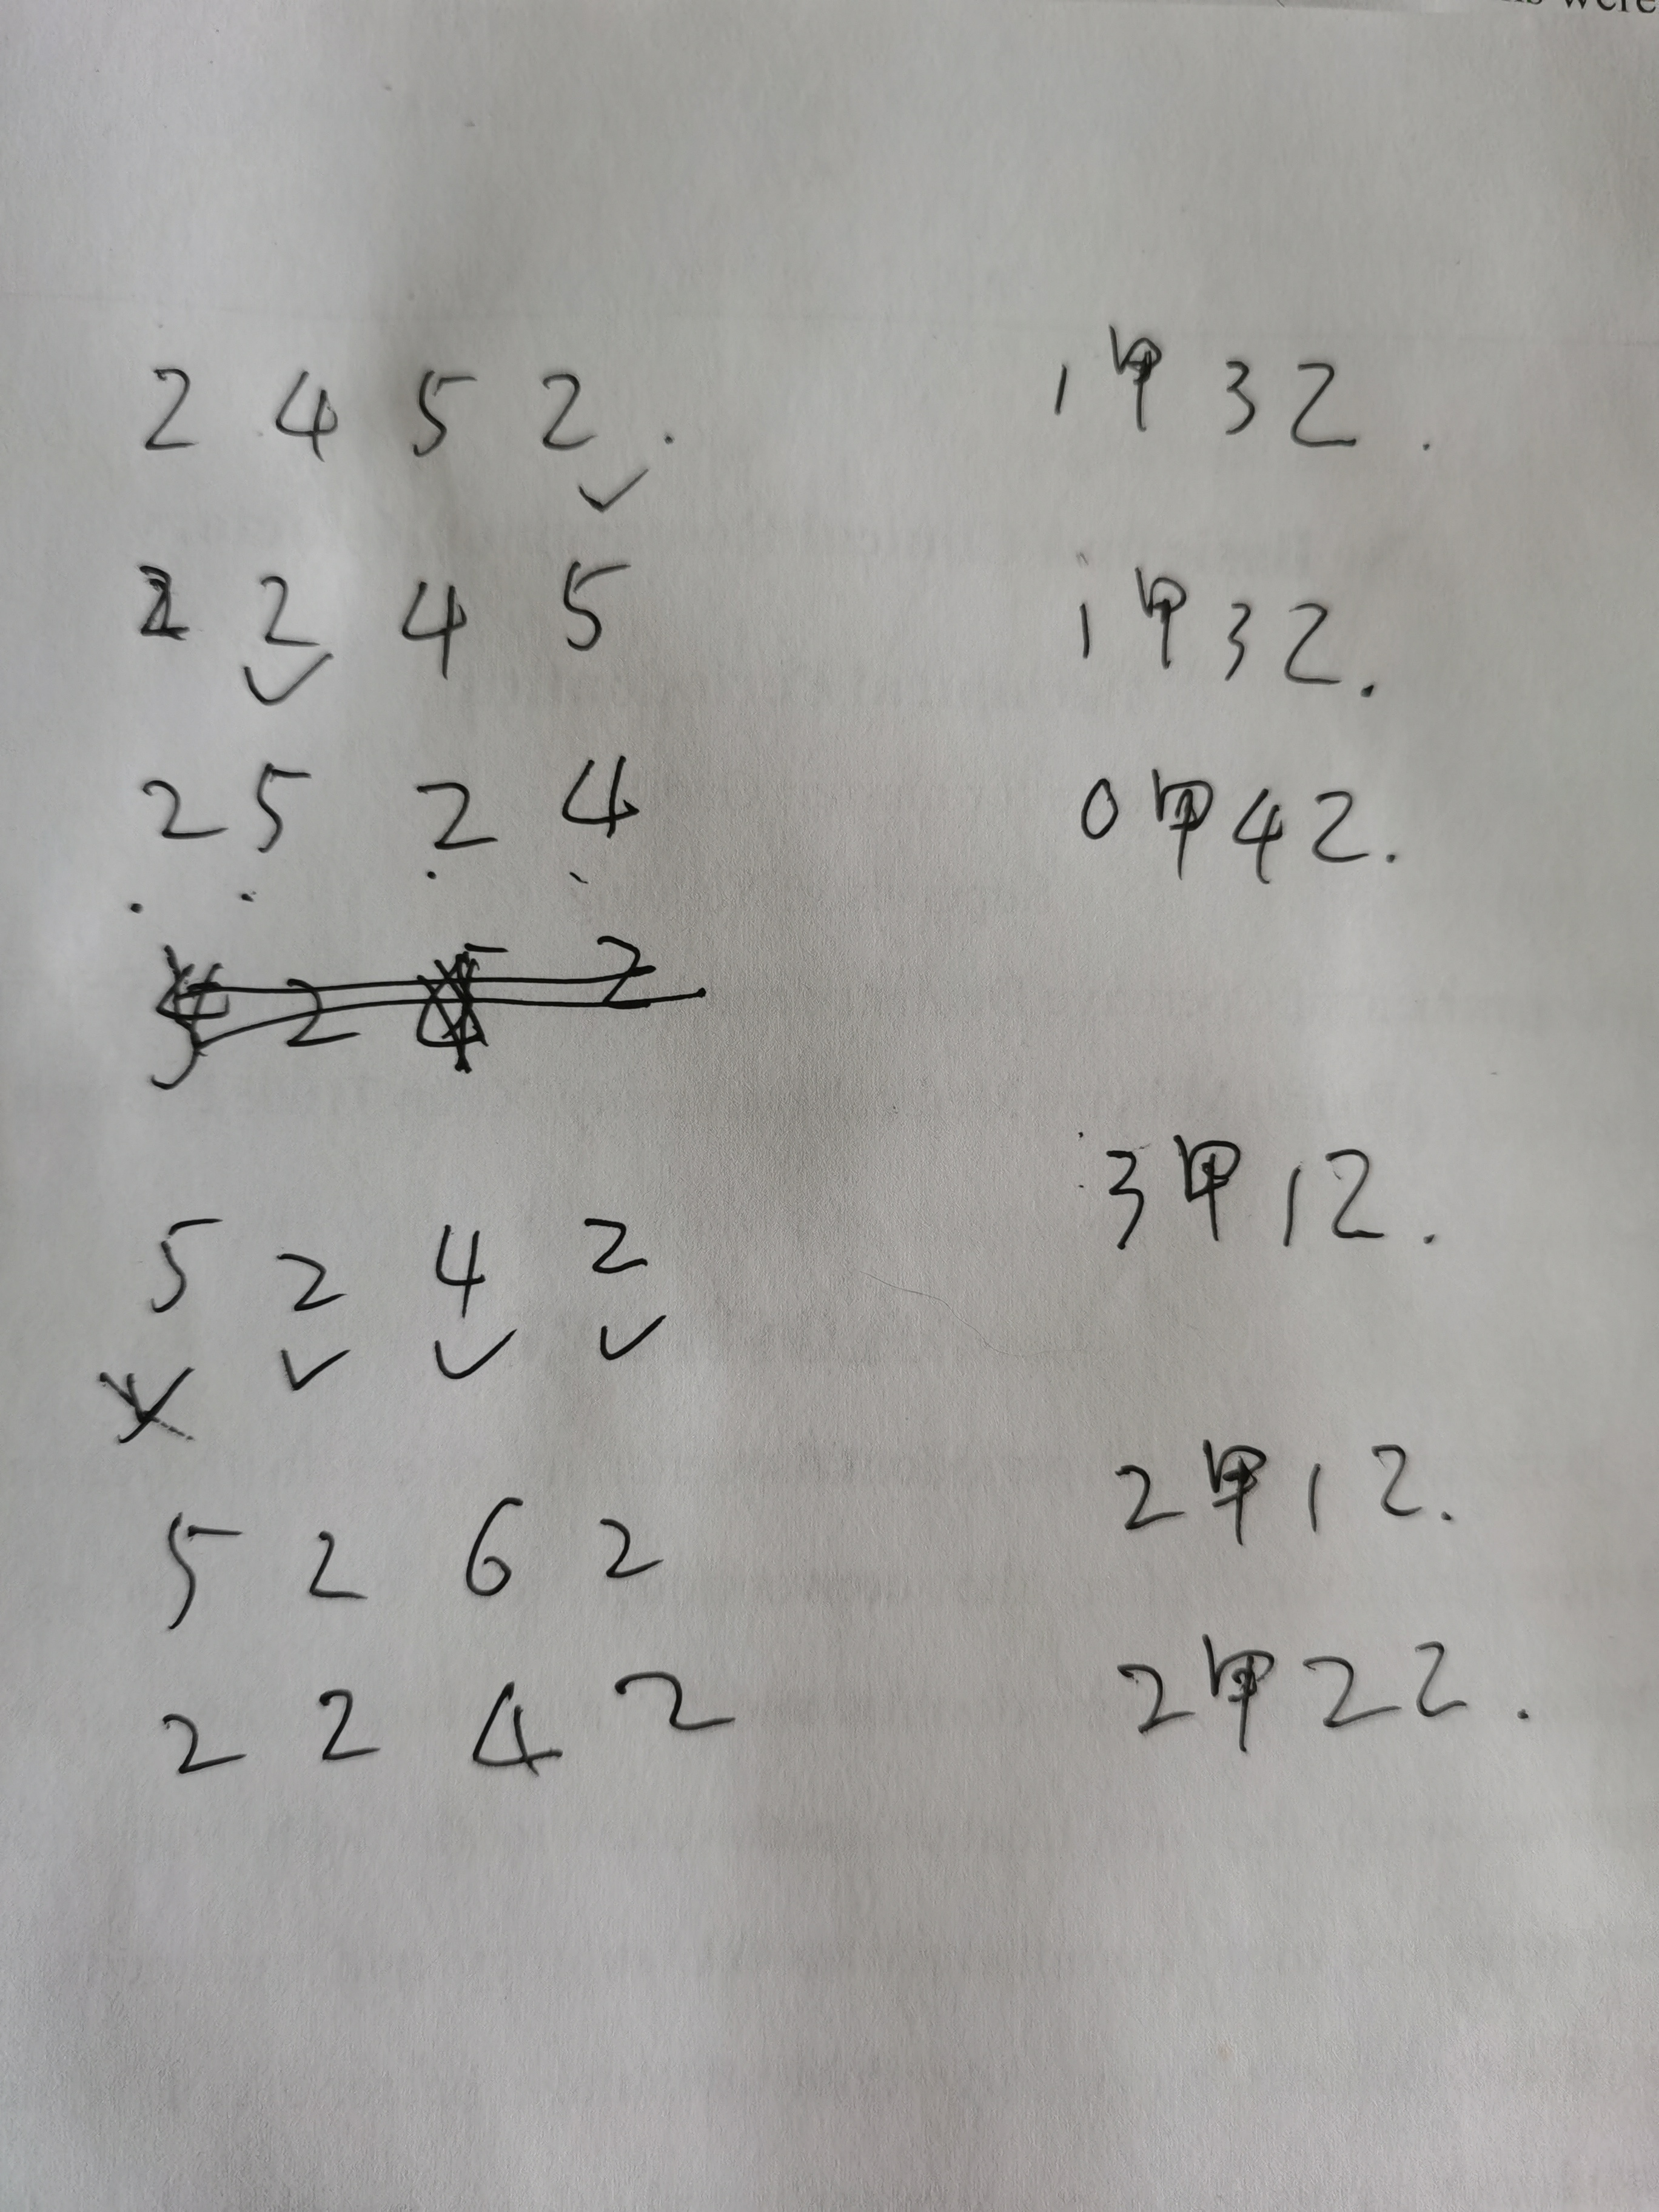 were
2 4 5 2 . 1甲 3 2 .
2 2 4 5 1甲 3 2 .
2 5 2 4 0甲 4 2 .
5 2 4 2 3甲 1 2 .
5 2 6 2 2甲 1 2 .
2 2 4 2 2甲 2 2 .